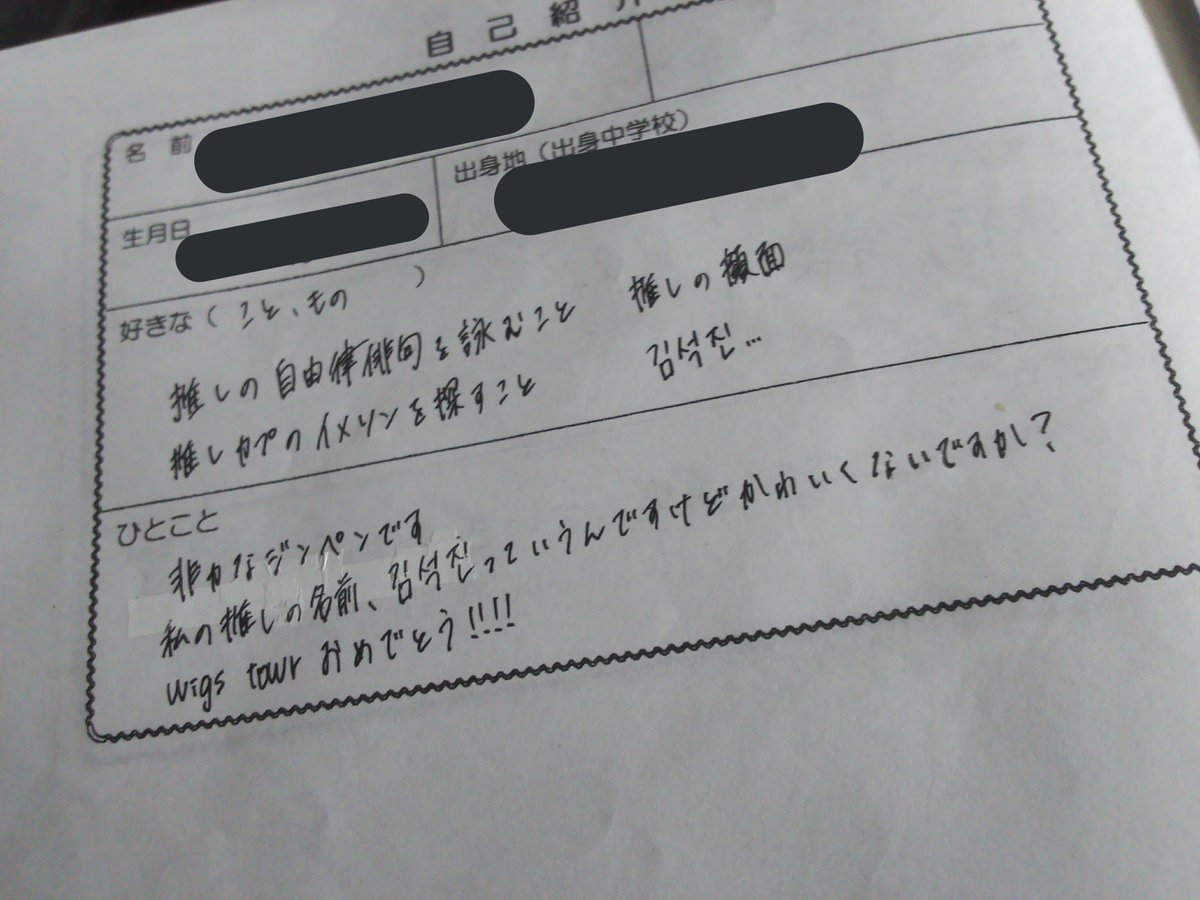 自己紹介
名前
生月日
出身地（出身中学校）
好きな（こと、もの）
推しの自由律俳句を詠むこと 推しの顔面
推しカプのイメソンを探すこと 김석진…
ひとこと
非力なジンペンです
私の推しの名前、김석진っていうんですけどかわいくないですか？
wigs tour おめでとう!!!!